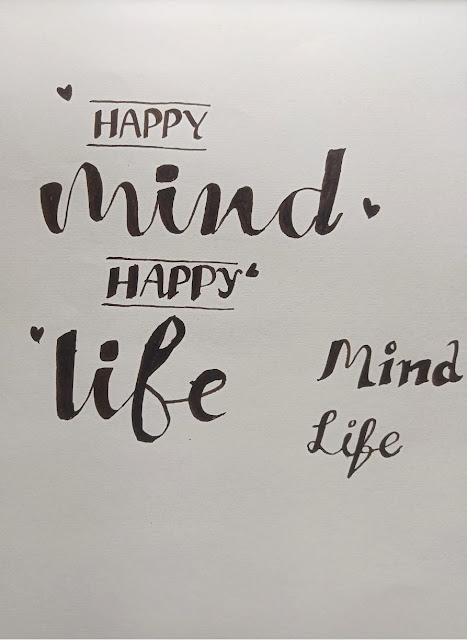 HAPPY
mind
HAPPY
life
Mind
Life